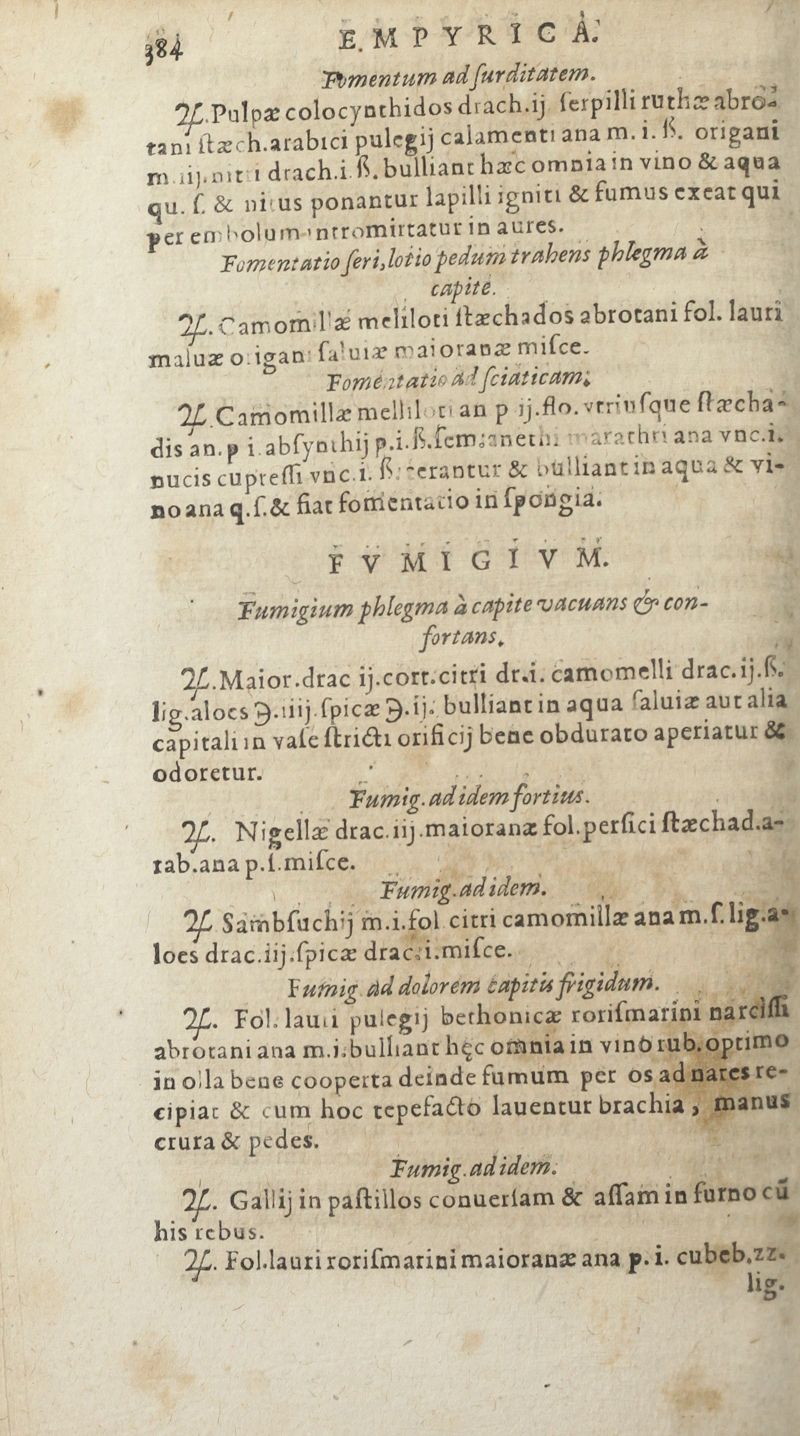 384 E. M P Y R I C A.
Fomentum ad ſurditatem.
♃. Pulpæ colocynthidos drach.ij ſerpilli ruthæ abro-
tani ſtæch.arabici pulegij calamenti ana m. i. ß. origani
m.iij. drach.i.ß. bulliant hæc omnia in vino & aqua
qu. ſ. & ponantur lapilli igniti & fumus exeat qui
per embolum intromittatur in aures.
Fomentatio ſeri, lotio pedum trahens phlegma à
capite.
♃. Camomillæ meliloti ſtæchados abrotani fol. lauri
maluæ origani ſaluiæ maioranæ miſce.
Fomentatio ad ſciaticam.
♃. Camomillæ melliloti an p ij.flo.vtriuſque ſtæcha-
dis an.p i abſynthij p.i.ß.ſem.anethi marathri ana vnc.i.
nucis cupreſſi vnc.i. ß. terantur & bulliant in aqua & vi-
no ana q.ſ.& fiat fomentatio in ſpongia.
F V M I G I V M.
Fumigium phlegma à capite vacuans & con-
fortans.
♃. Maior.drac ij.cort.citri dr.i. camomelli drac.ij.ß.
lig.aloes ℈.iiij.ſpicæ ℈.ij. bulliant in aqua ſaluiæ aut alia
capitali in vaſe ſtricti orificij bene obdurato aperiatur &
odoretur.
Fumig. ad idem fortius.
♃. Nigellæ drac.iij.maioranæ fol.perſici ſtæchad.a-
rab.ana p.i.miſce.
Fumig. ad idem.
♃ Sambſuchij m.i.fol citri camomillæ ana m.ſ.lig.a-
loes drac.iij.ſpicæ drac.i.miſce.
Fumig. ad dolorem capitis frigidum.
♃. Fol. lauri pulegij bethonicæ roriſmarini narciſſi
abrotani ana m.i.bulliant hęc omnia in vino rub.optimo
in olla bene cooperta deinde fumum per os ad nares re-
cipiat & cum hoc tepefacto lauentur brachia, manus
crura & pedes.
Fumig. ad idem.
♃. Gallij in paſtillos conuerſam & aſſam in furno cū
his rebus.
♃. Fol.lauri roriſmarini maioranæ ana p. i. cubeb.zz.
lig.